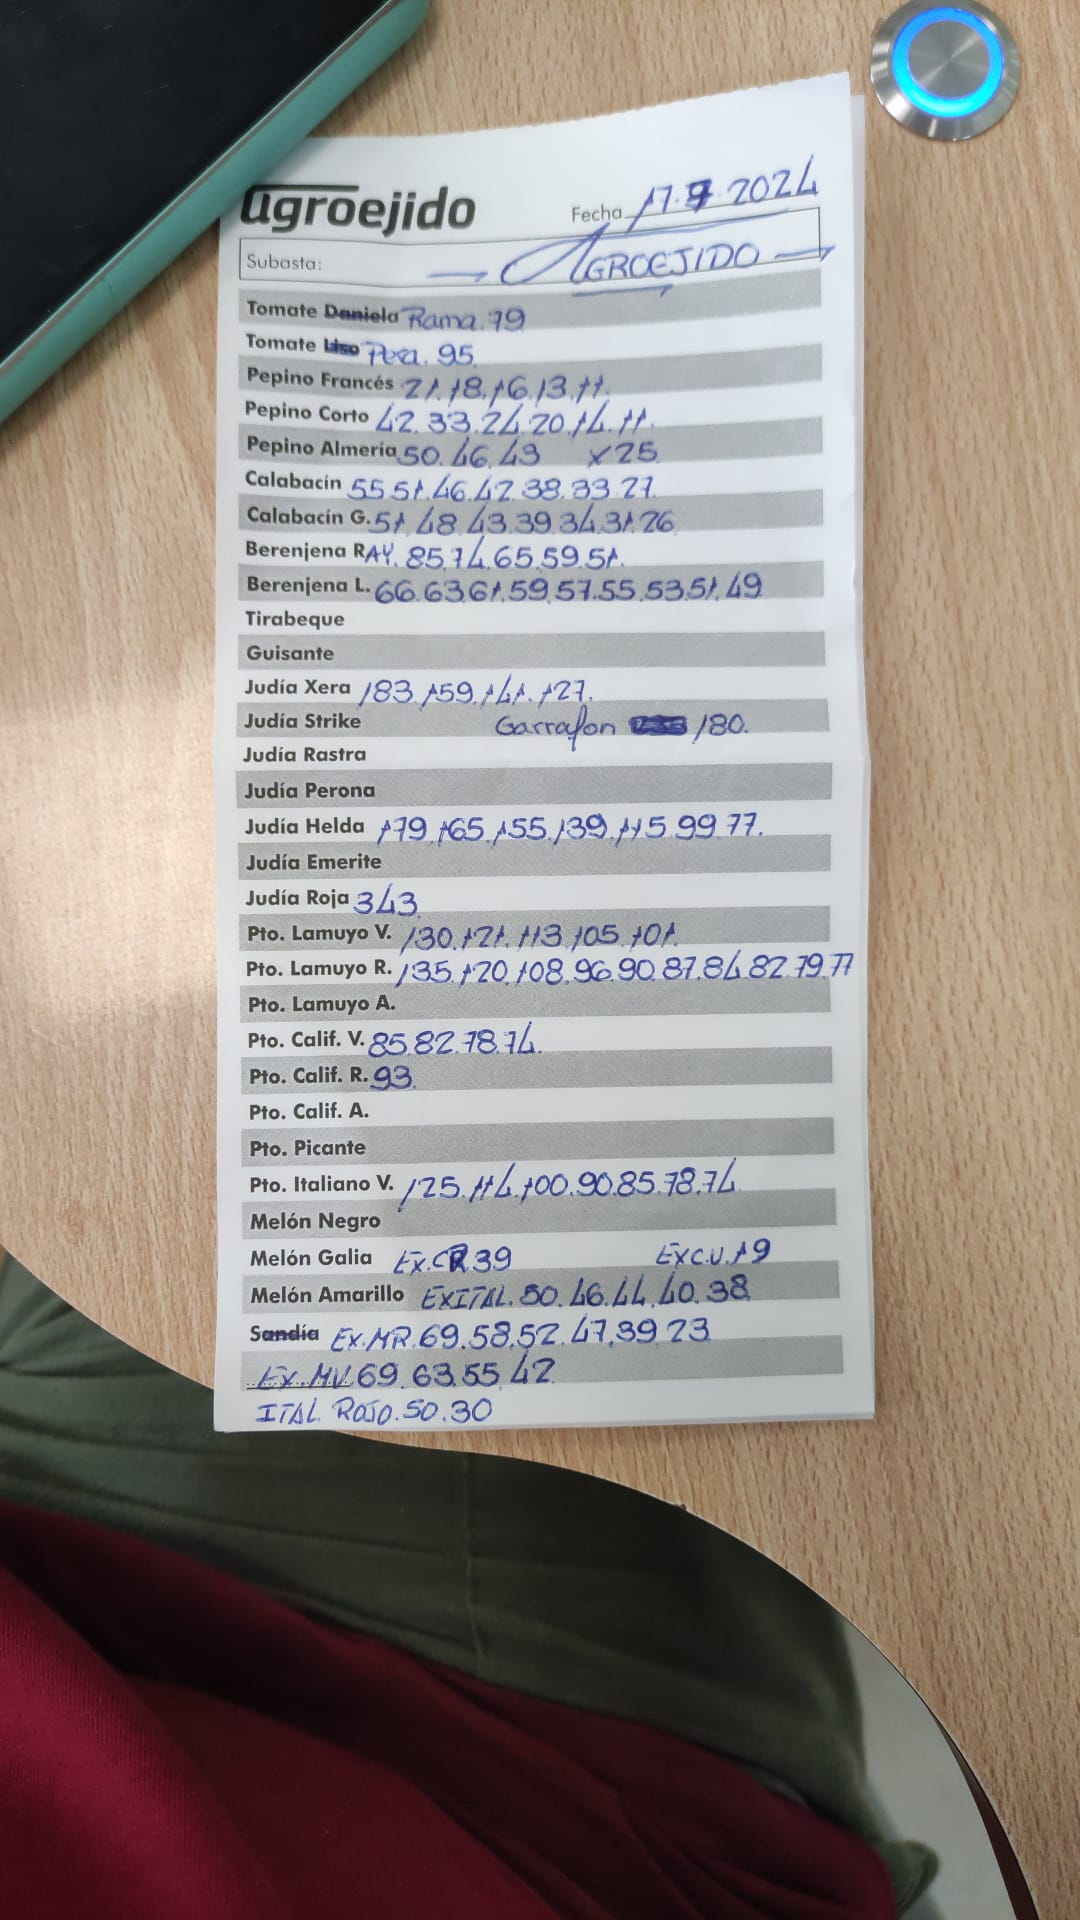 agroejido Fecha 17.9.2024
Subasta: AGROEJIDO
Tomate Daniela Rama. 79
Tomate Liso Pera. 95
Pepino Francés 21.18.16.13.11.
Pepino Corto 42.33.24.20.14.11.
Pepino Almería 50.46.43 x25
Calabacín 55.51.46.42.38.33.27.
Calabacín G. 51.48.43.39.34.31.26
Berenjena RAY. 85.74.65.59.51.
Berenjena L. 66.63.61.59.57.55.53.51.49
Tirabeque
Guisante
Judía Xera 183.159.141.127.
Judía Strike Garrafon 180.
Judía Rastra
Judía Perona
Judía Helda 179.165.155.139.115.99.77.
Judía Emerite
Judía Roja 343
Pto. Lamuyo V. 130.121.113.105.101.
Pto. Lamuyo R. 135.120.108.96.90.87.84.82.79.77
Pto. Lamuyo A.
Pto. Calif. V. 85.82.78.74.
Pto. Calif. R. 93
Pto. Calif. A.
Pto. Picante
Pto. Italiano V. 125.114.100.90.85.78.74
Melón Negro
Melón Galia EX.CR 39 EXCV.19
Melón Amarillo EXITAL. 50.46.44.40.38
Sandía EX.MR. 69.58.52.47.39.23
EX.MV. 69.63.55.42
ITAL. ROJO. 50.30